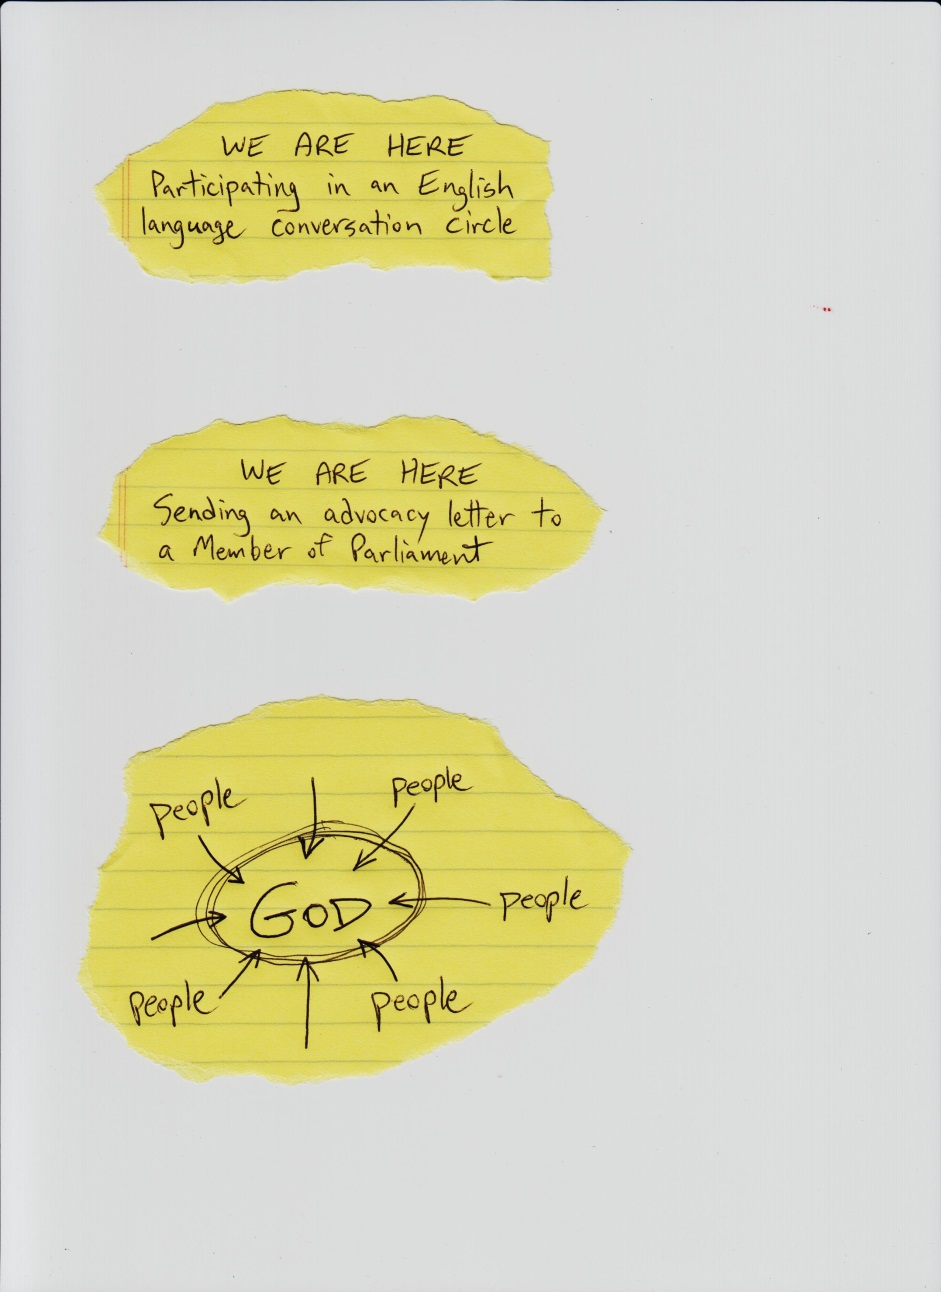 WE ARE HERE
Participating in an English
language conversation circle
WE ARE HERE
Sending an advocacy letter to
a Member of Parliament
people
people
GOD
people
people
people